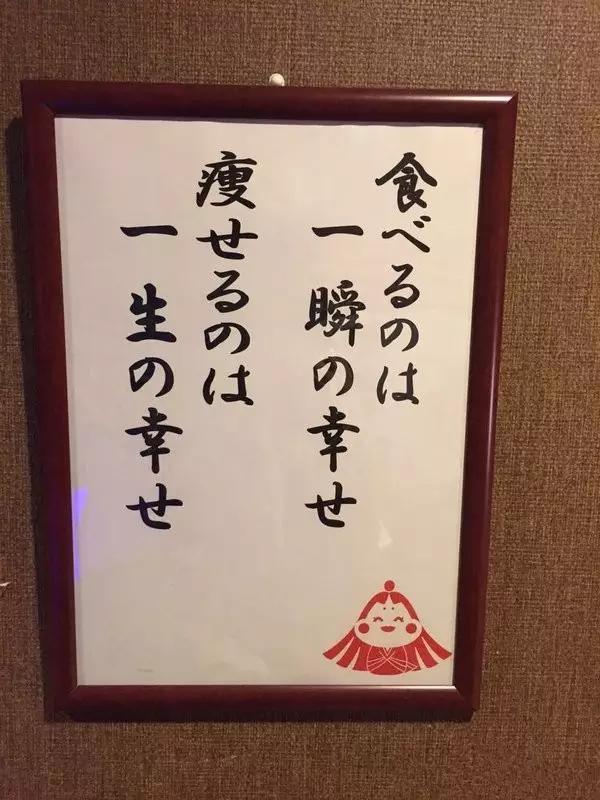 食べるのは
一瞬の幸せ
痩せるのは
一生の幸せ